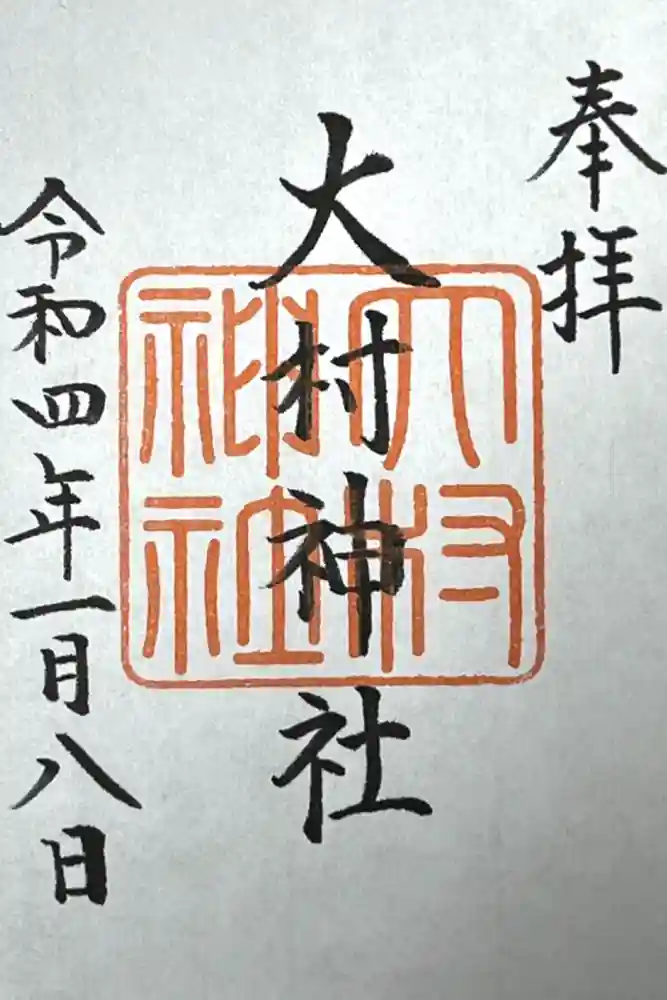 奉拝
大村神社
大村
神社
令和四年一月八日